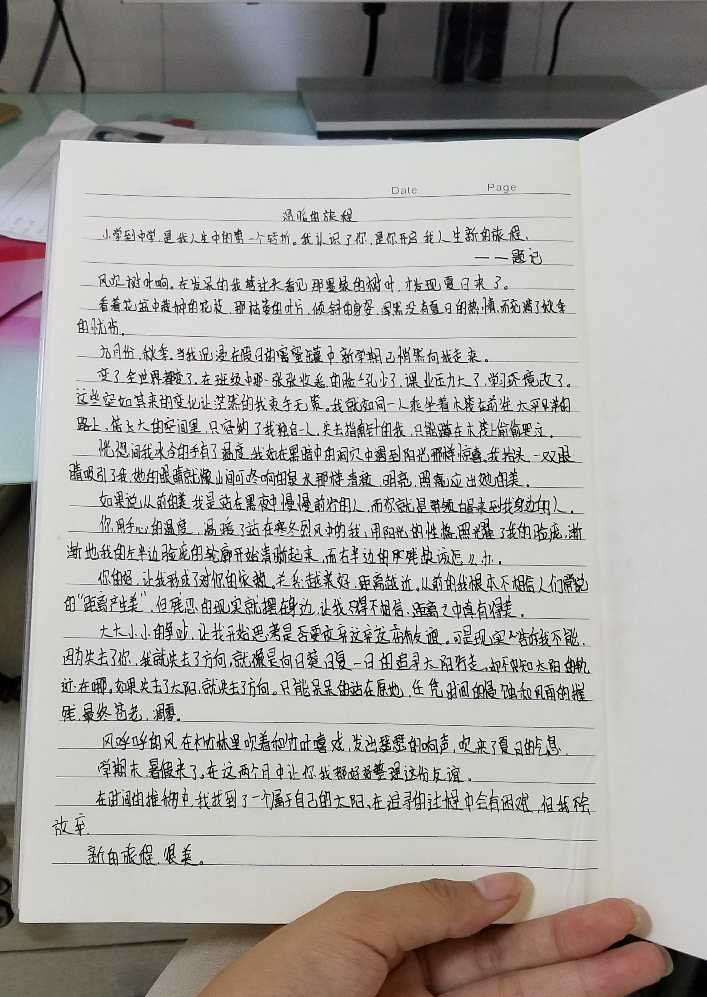 Date Page
的旅程
小学到中学,是我人生中的第一个转折。我认识了你,是你开启我人生新的旅程。
——题记
风吹树叶响。在发呆的我转过来看见那墨绿的树叶,才发现夏日来了。
看着花盆中栽种的花枝,那枯萎的叶片,倾斜的身姿,虽然没有夏日的热情,而充满了秋季
的忧伤。
九月份,秋季。当我沉浸在假日的蜜罐中新学期已悄然向我走来。
变了全世界都变了,在班级中那一张张收看的脸孔少了,课业压力大了,学习环境改了。
这些突如其来的变化让茫然的我束手无策。我就如同一人乘坐着木筏在前往太平洋的
路上,偌大的空间里,只容纳了我独自一人,失去指南针的我,只能蹲在木筏上偷偷哭泣。
恍惚间我冰冷的手有了温度,我如在黑暗中的洞穴中遇到阳光那样惊喜。我抬头,一双眼
睛吸引了我,她的眼睛就像山间叮咚响的泉水那样清澈,明亮,照应出她的美。
如果说从前的我是站在黑夜中慢慢前行的人,而你就是带领白昼来到我身边的人。
你用手心的温度,温暖了站在寒冬烈风中的我,用阳光的性格照耀了我的脸庞,渐
渐地我的左半边脸庞的轮廓开始清晰起来,而右半边的残缺该怎么办。
你的好,让我形成了对你的依赖。关系越来好,距离越近。从前的我根本不相信人们常说
的“距离产生美”,但残忍的现实就摆在身边,让我不得不相信,距离之中真有得美。
大大小小的争吵,让我开始思考是否要放弃这友谊。可是现实告诉我不能,
因为失去了你,我就失去了方向,就像是向日葵日复一日的追寻太阳行走,却不知太阳的轨
迹在哪。如果失去了太阳,就失去了方向。只能呆呆的站在原地,任凭时间的侵蚀和风雨的摧
残,最终苍老,凋零。
风呼呼的风在树林里吹着和竹叶嬉戏,发出的响声,吹来了夏日的气息。
学期末暑假来了。在这两个月中让你我都好好整理这份友谊。
在时间的推移中,我找到了一个属于自己的太阳,在追寻的过程中会有困难,但我不会
放弃。
新的旅程,很美。